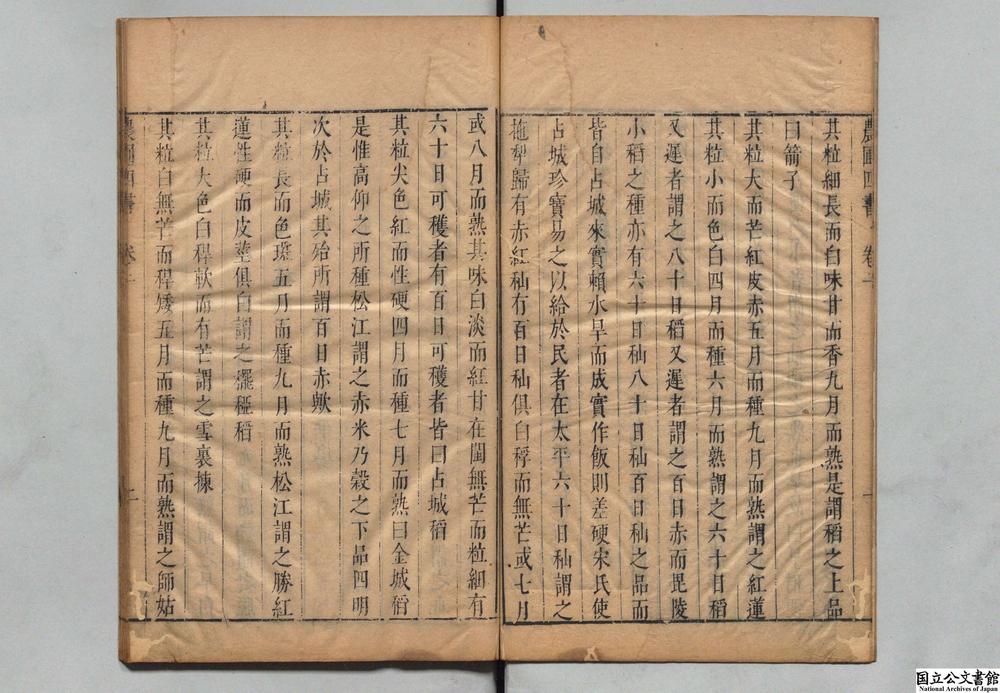 農圃四書 卷一 一
其粒細長而白味甘而香九月而熟是謂稻之上品
曰箭子
其粒大而芒紅皮赤五月而種九月而熟謂之紅蓮
其粒小而色白四月而種六月而熟謂之六十日稻
又遲者謂之八十日稻又遲者謂之百日赤而毘陵
小稻之種亦有六十日秈八十日秈百日秈之品而
皆自占城來實賴水旱而成實作飯則差硬宋氏使
占城珍寶易之以給於民者在太平六十日秈謂之
拖犁歸有赤紅秈有百日秈俱白稃而無芒或七月
或八月而熟其味白淡而紅甘在閩無芒而粒細有
六十日可穫者有百日可穫者皆曰占城稻
其粒尖色紅而性硬四月而種七月而熟曰金城稻
是惟高仰之所種松江謂之赤米乃穀之下品四明
次於占城其殆所謂百日赤歟
其粒長而色斑五月而種九月而熟松江謂之勝紅
蓮性硬而皮莖俱白謂之䆉稏稻
其粒大色白稈軟而有芒謂之雪裏揀
其粒白無芒而稈矮五月而種九月而熟謂之師姑
農圃四書 卷一 二
国立公文書館
National Archives of Japan